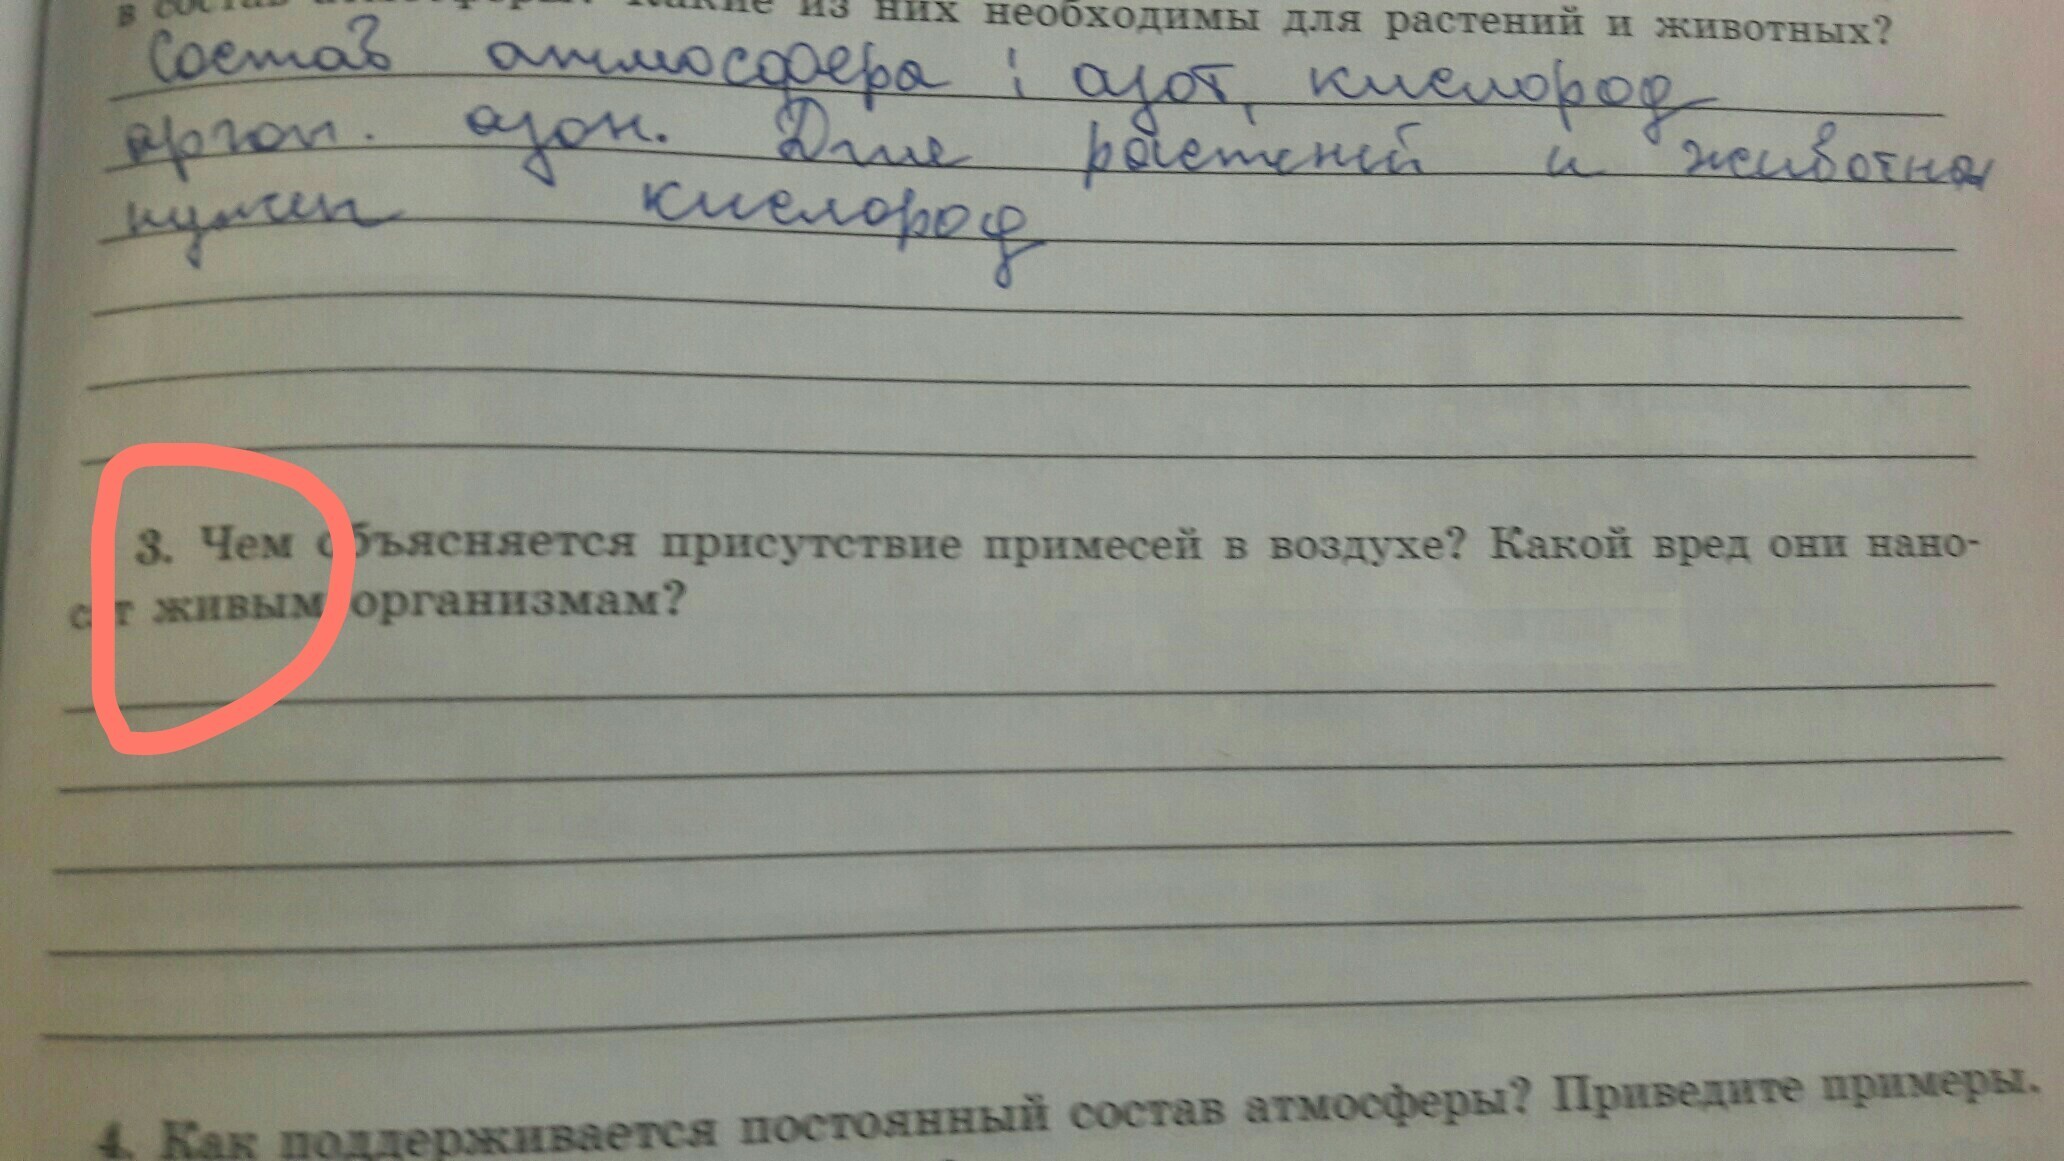 в состав атмосферы? Какие из них необходимы для растений и животных?
Состав атмосфера : азот, кислород
аргон. озон. Для растений и животна
нужен кислород
3. Чем объясняется присутствие примесей в воздухе? Какой вред они нано-
сят живым организмам?
4. Как поддерживается постоянный состав атмосферы? Приведите примеры.